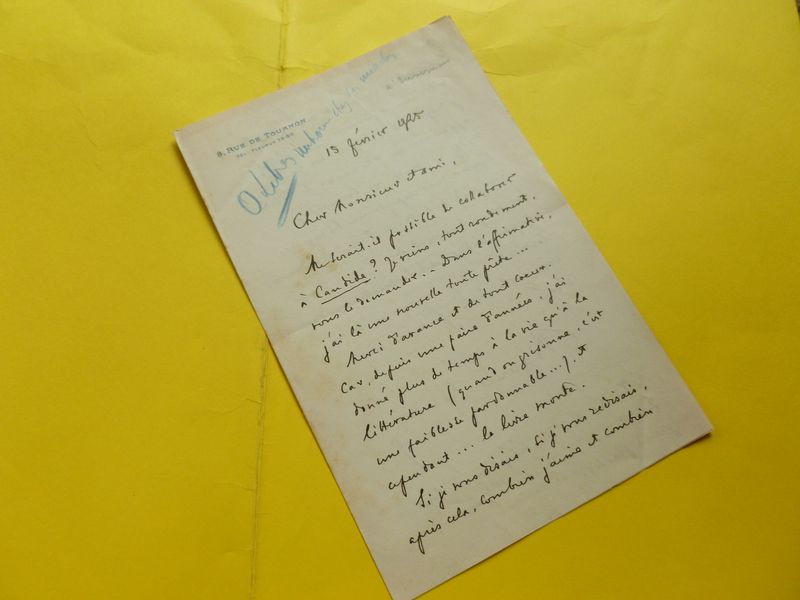 8, RUE DE TOURNON
13 février 1925
Cher Monsieur et ami,
Me serait-il possible de collaborer
à Candide ? Je viens, tout rondement,
vous le demander... Dans l'affirmative,
j'ai là une nouvelle toute prête...
Merci d'avance et de tout coeur.
Car, depuis une paire d'années, j'ai
donné plus de temps à la vie qu'à la
littérature (quand on grisonne, c'est
une faiblesse pardonnable...). Et
cependant... le livre monte.
Si je vous disais, si je vous redisais,
après cela, combien j'aime et combien